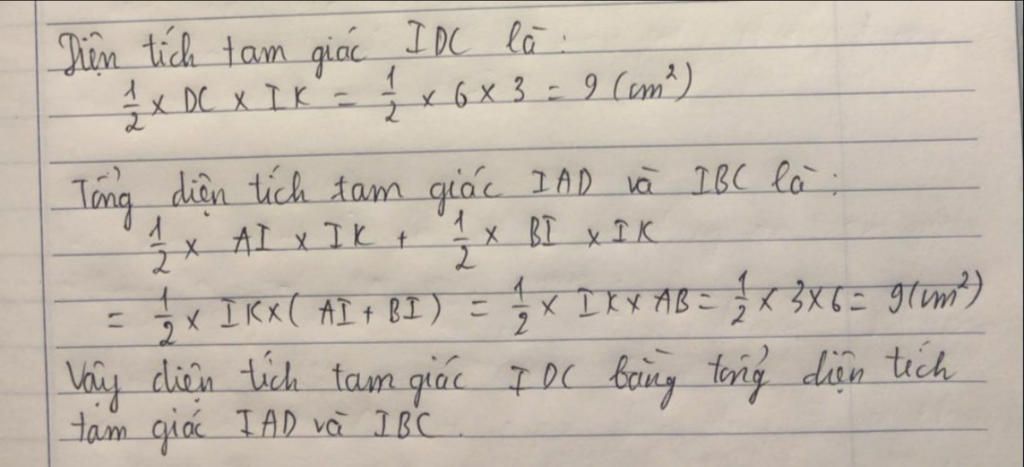 Diện tích tam giác IDC là:
1/2 × DC × IK = 1/2 × 6 × 3 = 9 (cm²)
Tổng diện tích tam giác IAD và IBC là:
1/2 × AI × IK + 1/2 × BI × IK
= 1/2 × IK × ( AI + BI ) = 1/2 × IK × AB = 1/2 × 3 × 6 = 9 (cm²)
Vậy diện tích tam giác IDC bằng tổng diện tích
tam giác IAD và IBC.